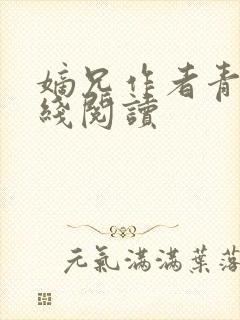 嫡兄作者青
綫閱讀
元氣滿滿葉落